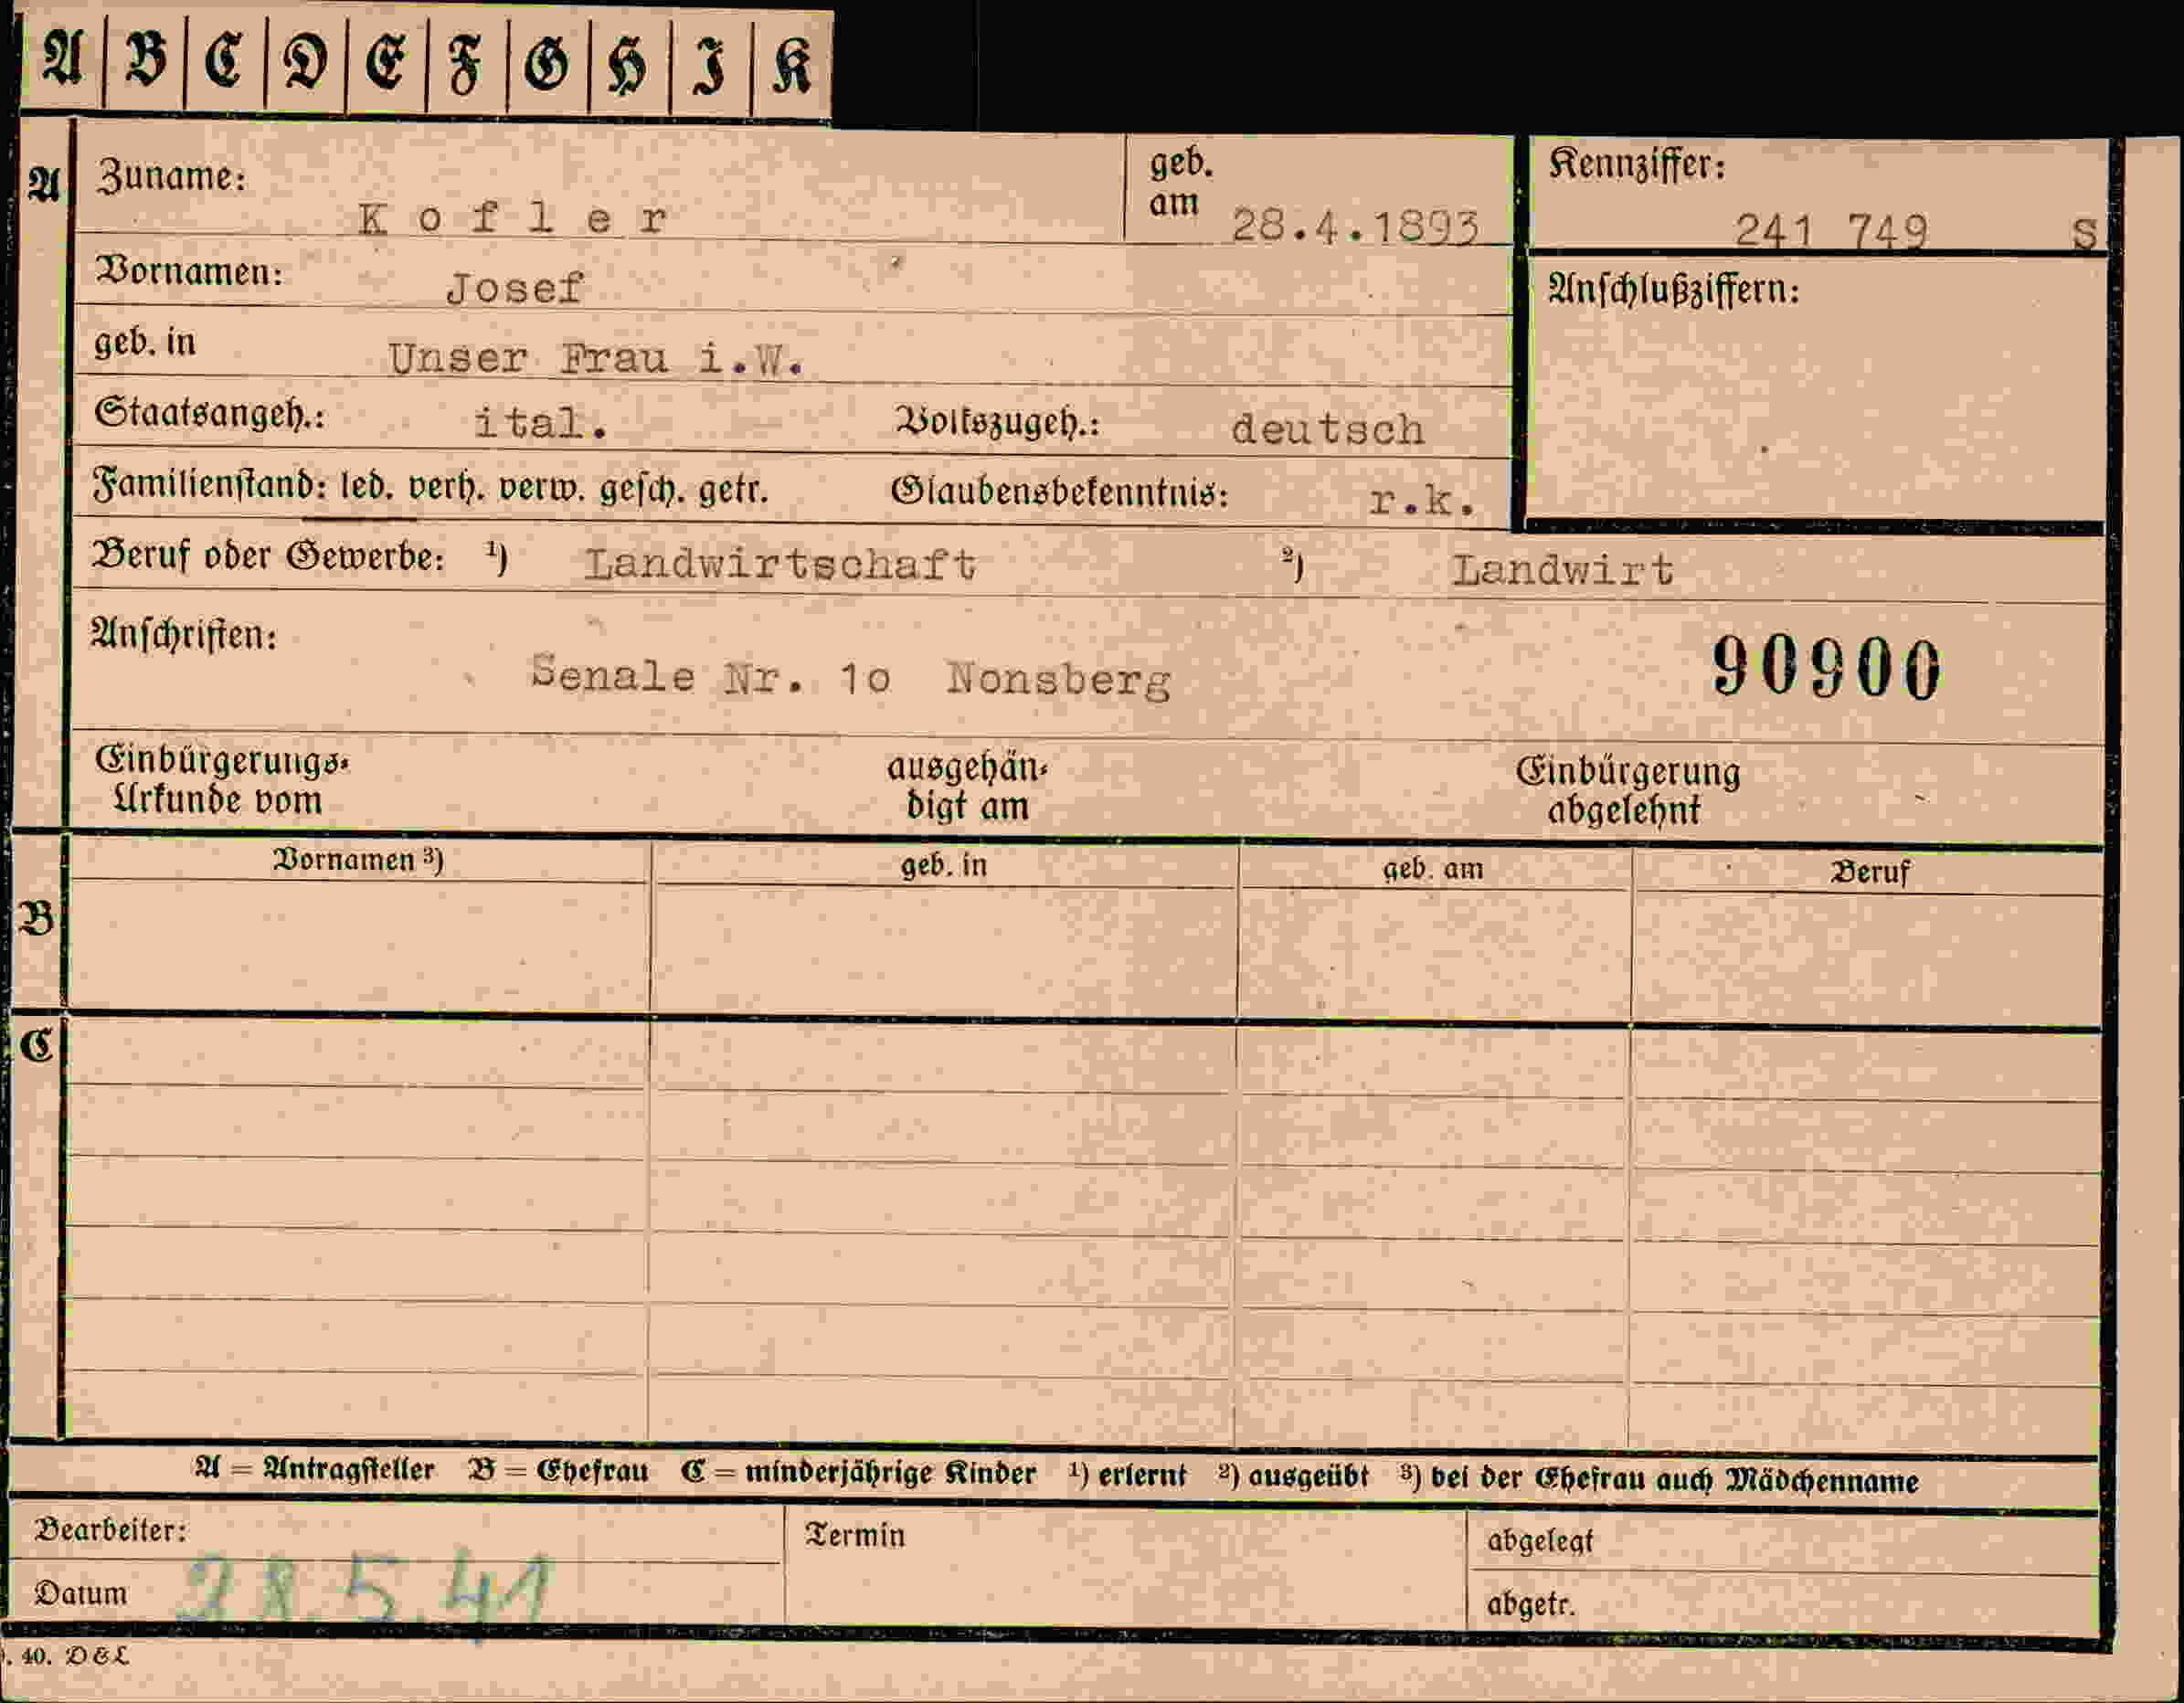 A B C D E F G H I K
A Zuname: Kofler geb. am 28.4.1893 Kennziffer: 241 749 S
Vornamen: Josef Anschlußziffern:
geb. in Unser Frau i.W.
Staatsangeh.: ital. Volkszugeh.: deutsch
Familienstand: led. verh. verw. gesch. getr. Glaubensbekenntnis: r.k.
Beruf oder Gewerbe: ¹) Landwirtschaft ²) Landwirt
Anschriften: Senale Nr. 1o Nonsberg 90900
Einbürgerungs- ausgehän- Einbürgerung
Urkunde vom digt am abgelehnt
Vornamen ³) geb. in geb. am Beruf
B
C
A = Antragsteller B = Ehefrau C = minderjährige Kinder ¹) erlernt ²) ausgeübt ³) bei der Ehefrau auch Mädchenname
Bearbeiter: Termin abgelegt
Datum 28.5.41 abgetr.
. 40. D&L